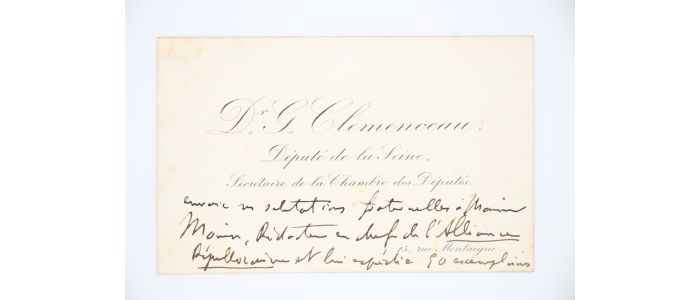 Dr. G. Clemenceau.
Député de la Seine,
Secrétaire de la Chambre des Députés.
envoie ses salutations fraternelles à
Rédacteur en chef de l'Alliance
15, rue Montaigne
Républicaine et lui expédie 50 exemplaires